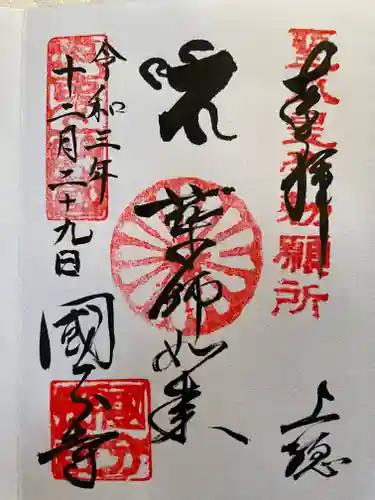 奉拝
聖武天皇勅願所
上総
薬師如来
令和三年
十二月二十九日
國分寺